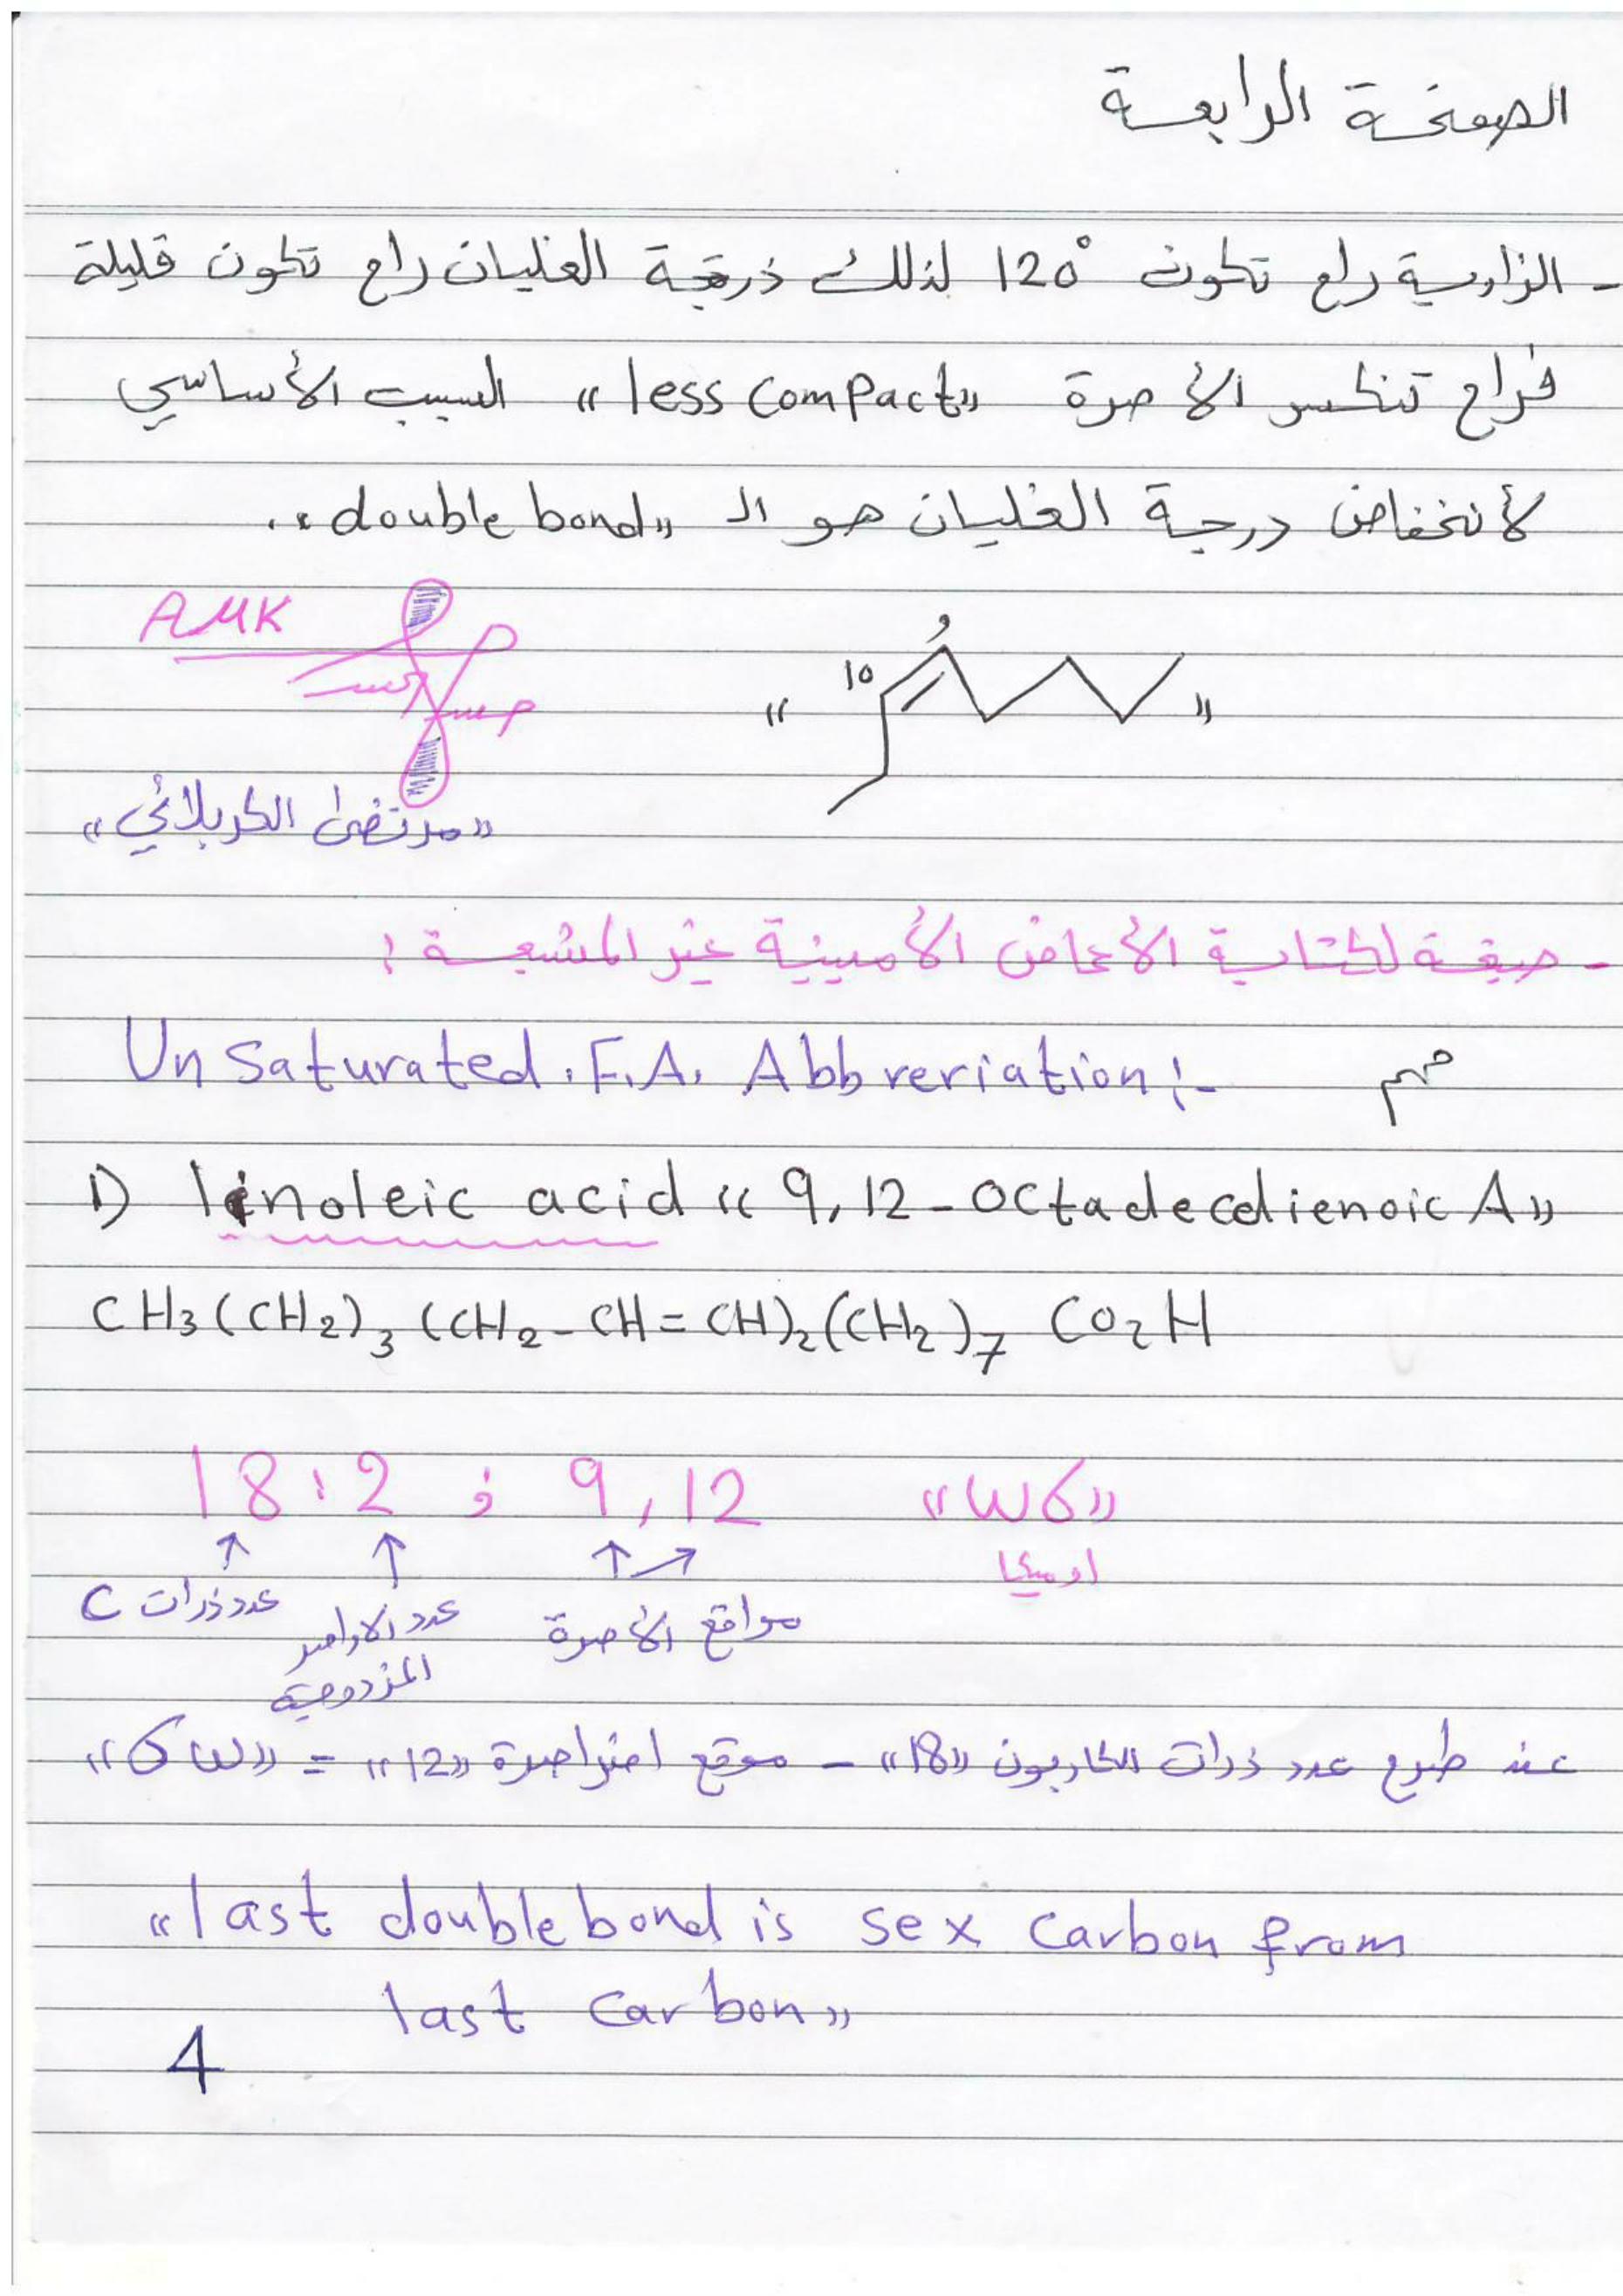 الصفحة الرابعة
- الزاوية راح تكون 120° لذلك ذرجة الغليان راح تكون قليلة
فراح تنكسر الأصرة «less compact» السبب الأساسي
لأنخفاض درجة الغليان هو الـ «double bond».
AMK
10 9
« »
«مرتضى الكربلائي»
- صيغة لكتابة الأحماض الأمينية غير المشبعة :
Un Saturated . F.A. Abbreriation :-
مهم
1) linoleic acid « 9,12-octadecdienoic A»
CH3(CH2)3 (CH2-CH=CH)2(CH2)7 CO2H
18:2 ; 9,12 «ω6»
اوميكا
عدد ذرات C
عدد الاواصر المزدوجة
مواقع الأصرة
عند طرح عدد ذرات الكاربون «18» - موقع اخر اصرة «12» = «6 ω»
«last double bond is sex carbon from
last carbon»
4